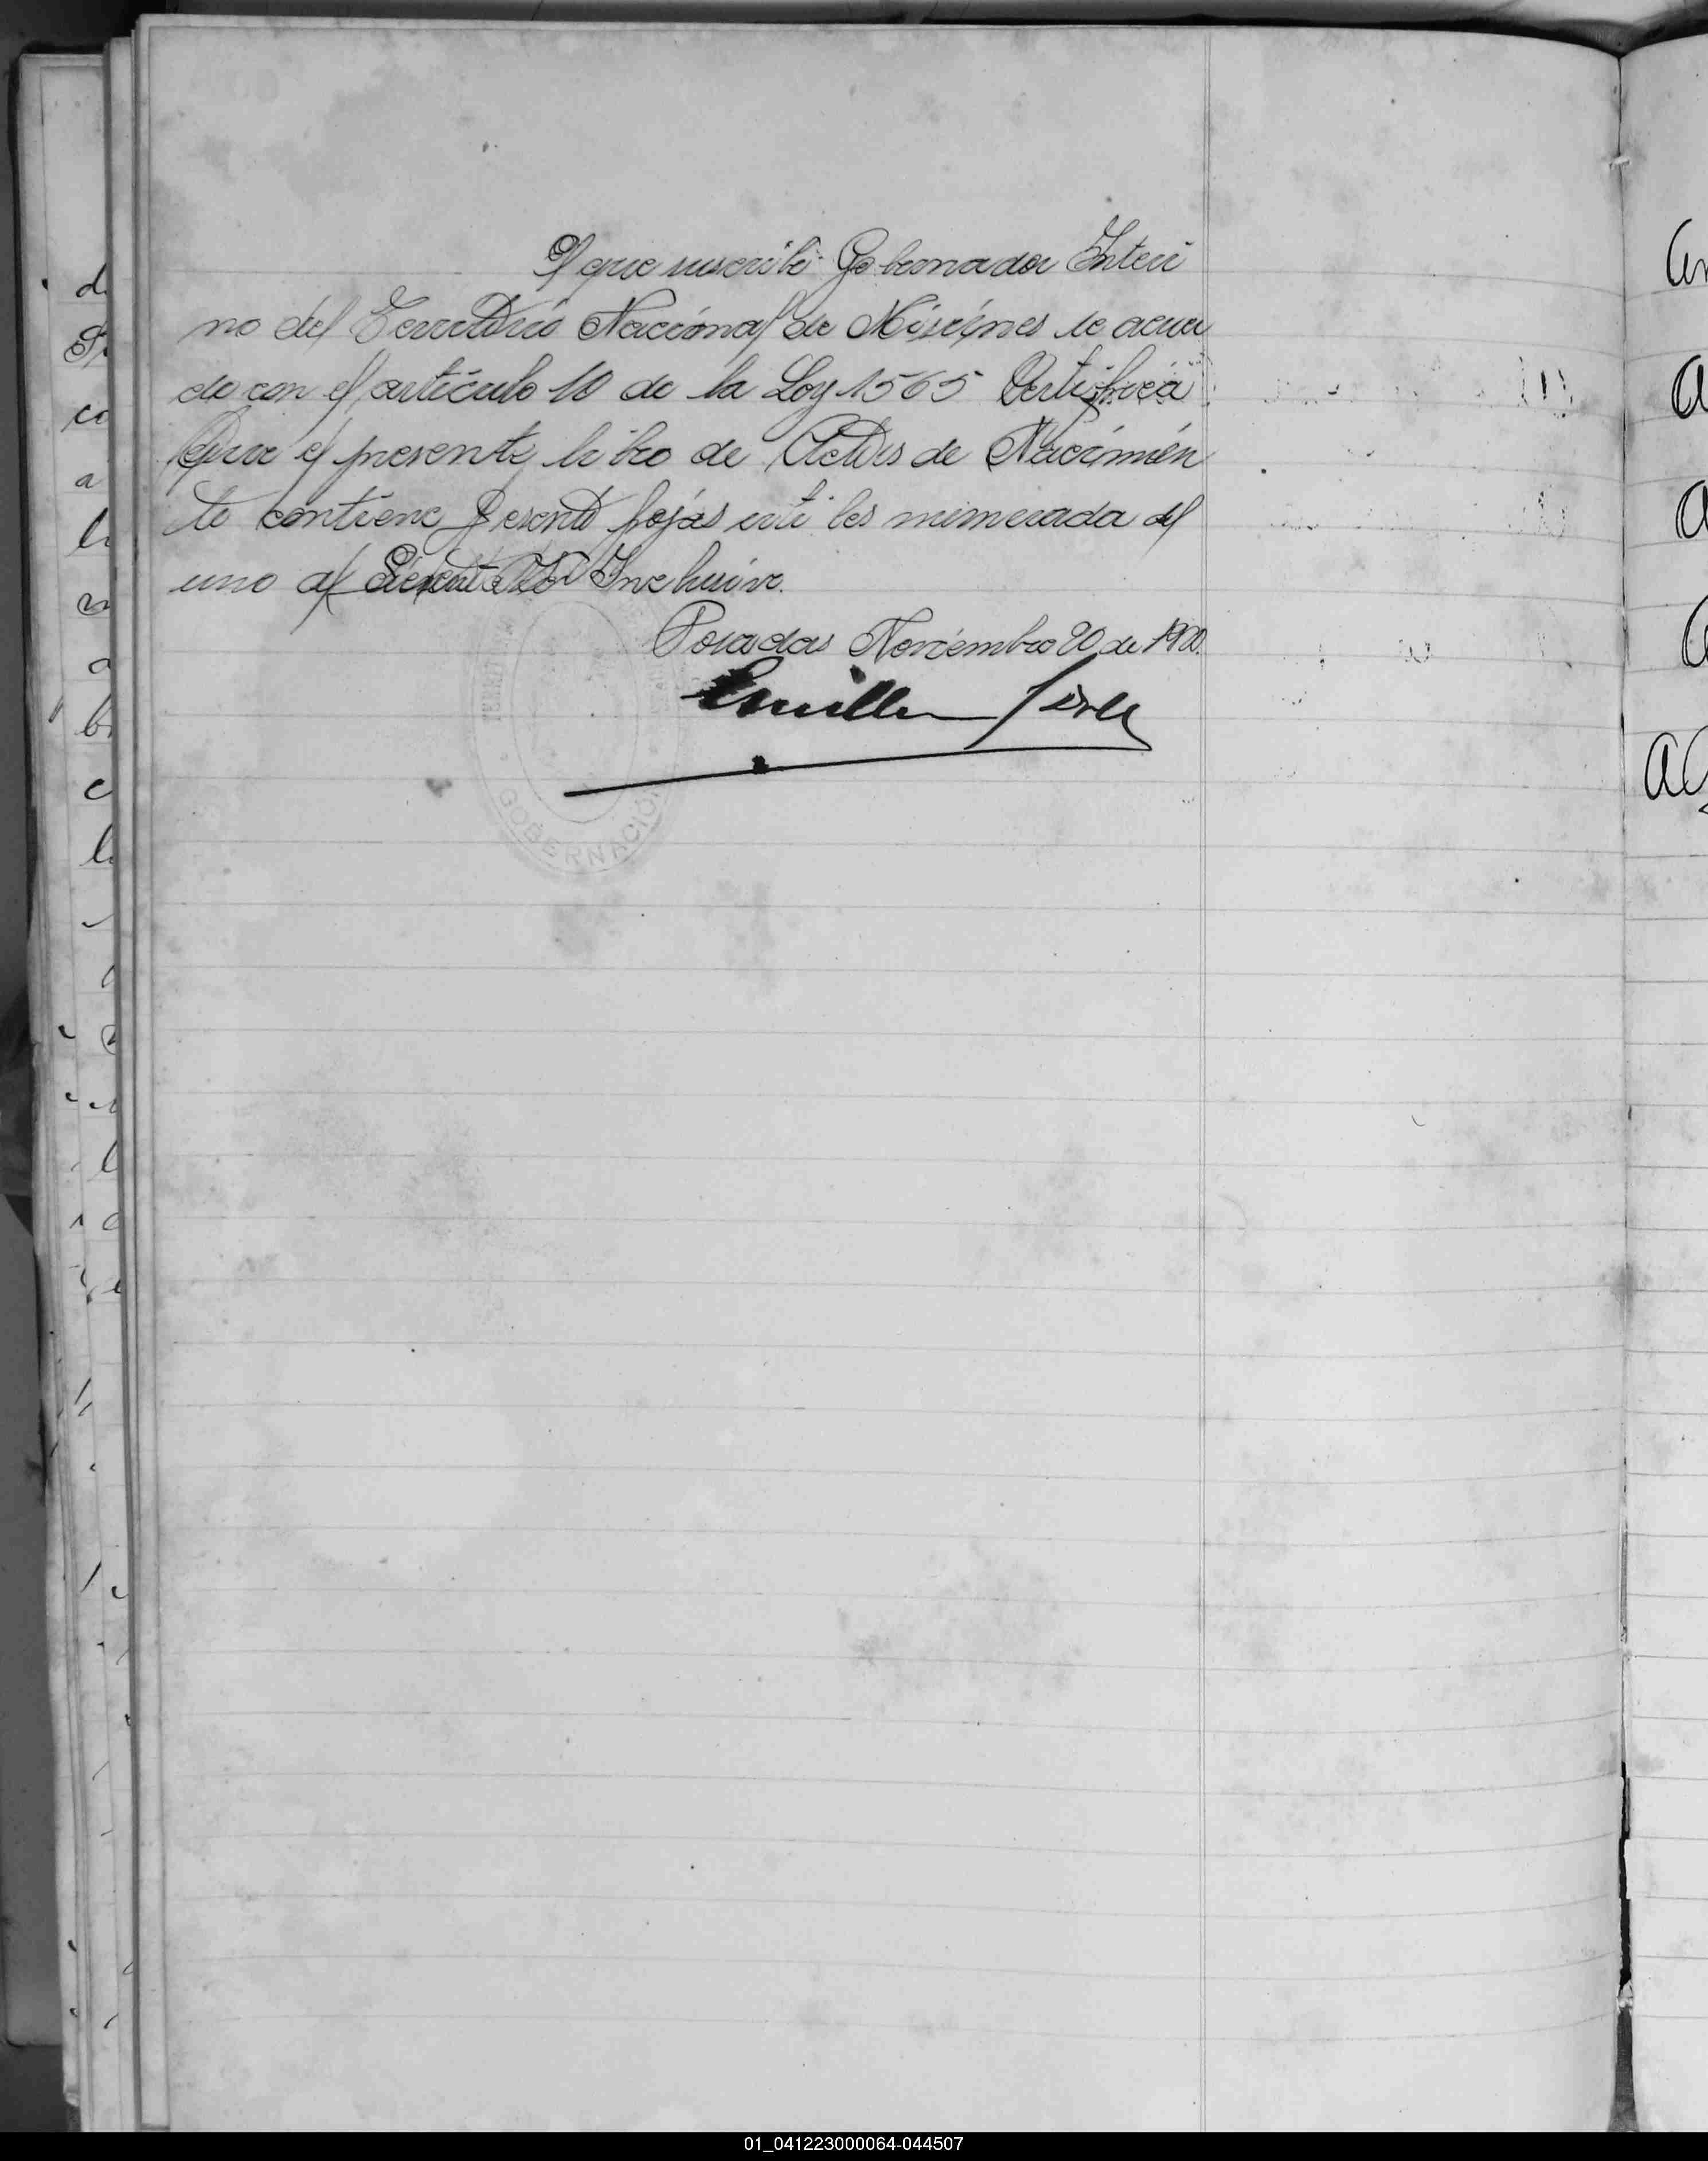 El que suscribe Gobernador Interi
no del Territorio Nacional de Misiones de acuer
do con el articulo 10 de la Ley 1565 Certifica
Que el presente libro de Actas de Nacimien
to contiene fojas utiles numerada del
uno al Inclusive.
Posadas Noviembre 20 de 1900.
GOBERNACIÓN
01_041223000064-044507